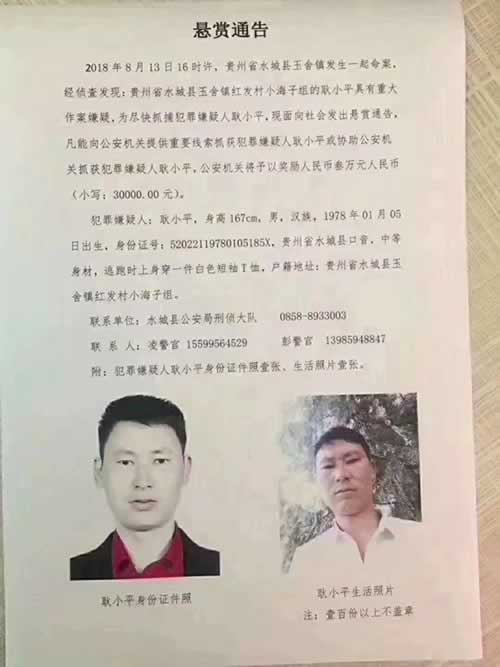 悬赏通告
2018年8月13日16时许，贵州省水城县玉舍镇发生一起命案，
经侦查发现：贵州省水城县玉舍镇红发村小海子组的耿小平具有重大
作案嫌疑，为尽快抓捕犯罪嫌疑人耿小平，现面向社会发出悬赏通告，
凡能向公安机关提供重要线索抓获犯罪嫌疑人耿小平或协助公安机
关抓获犯罪嫌疑人耿小平，公安机关将予以奖励人民币叁万元人民币
（小写：30000.00元）。
犯罪嫌疑人：耿小平，身高167cm，男，汉族，1978年01月05
日出生，身份证号：52022119780105185X，贵州省水城县口音，中等
身材，逃跑时上身穿一件白色短袖T恤，户籍地址：贵州省水城县玉
舍镇红发村小海子组。
联系单位：水城县公安局刑侦大队 0858-8933003
联系人：凌警官 15599564529 彭警官 13985948847
附：犯罪嫌疑人耿小平身份证件照壹张、生活照片壹张。
耿小平身份证件照
耿小平生活照片
注：壹百份以上不盖章